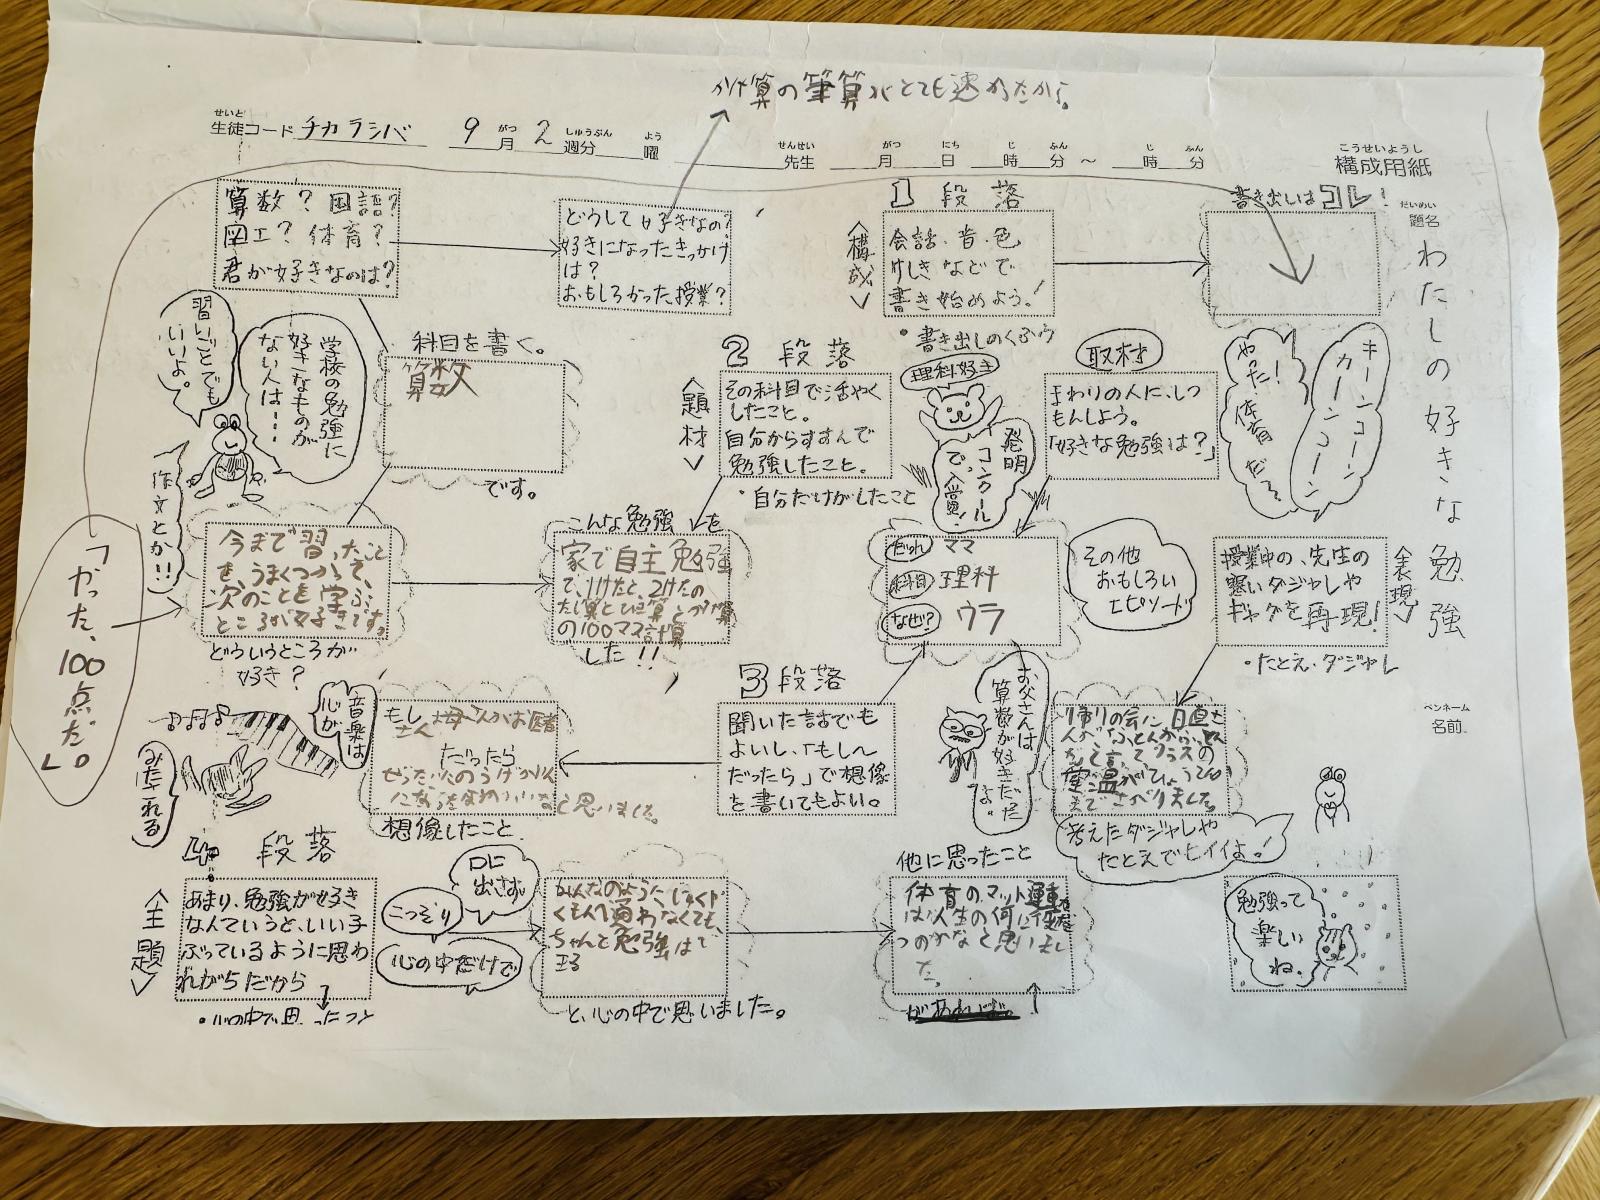 かけ算の筆算がとても速かったから。
せいと がつ しゅうぶん よう せんせい がつ にち じ ふん じ ふん こうせいようし
生徒コード チカラシバ 9月 2週分 曜 先生 月 日 時 分 ～ 時 分 構成用紙
だいめい
題名
わたしの好きな勉強
ペンネーム
名前
書き出しはコレ!
1 段落
〈構成〉
会話・音・色
けしきなどで
書き始めよう!
・書き出しのくふう
どうして好きなの?
好きになったきっかけ
は?
おもしろかった授業?
算数? 国語?
図工? 体育?
君が好きなのは?
キーンコーン
カーンコーン
やった!
体育だ〜
取材
まわりの人に、しつ
もんしよう。
「好きな勉強は?」
理科好き
発明
コンクール
で、入賞!
2 段落
〈題材〉
その科目で活やく
したこと。
自分からすすんで
勉強したこと。
・自分だけがしたこと
科目を書く。
算数
です。
学校の勉強に
好きなものが
ない人は・・・・
習いごとでも
いいよ。
作文とか!!
「やった、100点だ。」
今まで習ったこと
を、うまくつかって、
次のことを学ぶ
ところが好きです。
どういうところが
好き?
こんな勉強を
家で自主勉強
で、1けたと、2けたの
たし算とひき算とかけ算
の100マス計算
した!!
だれ ママ
科目 理科
なぜ? ウラ
その他
おもしろい
エピソード
〈表現〉
授業中の、先生の
寒いダジャレや
ギャグを再現!
・たとえ・ダジャレ
3 段落
聞いた話でも
よいし、「もし〜
だったら」で想像
を書いてもよい。
お父さんは
算数が好きだだ
よ。
もし、お母さんがお医者
さん
だったら
と思いました。
想像したこと
音楽は
心が
みだれる
考えたダジャレや
たとえでヒイイよ!
4 段落
〈主題〉
あまり、勉強が好き
なんていうと、いい子
ぶっているように思わ
れがちだから
・心の中で思ったこと
口に
出さず
こっそり
心の中だけで
みんなのように、じゅく
通わなくても、
ちゃんと勉強はで
きる
と、心の中で思いました。
他に思ったこと
体育のマット運動
は人生の何に役立
つのかなと思いまし
た。
があれば。
勉強って
楽しい
ね、